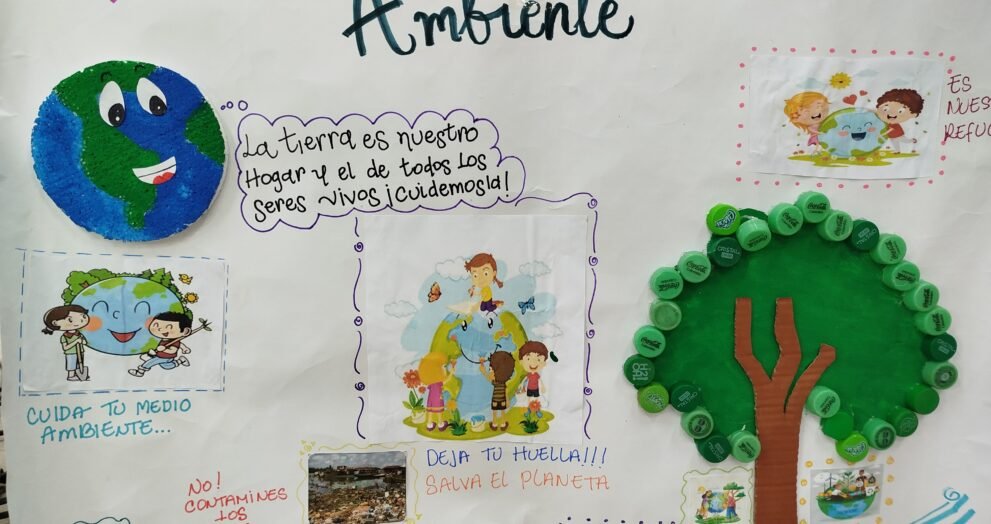 Ambiente
La tierra es nuestro
Hogar y el de todos los
seres vivos ¡Cuidemosla!
ES
CUIDA TU MEDIO
AMBIENTE...
DEJA TU HUELLA!!!
SALVA EL PLANETA
NO!
CONTAMINES
LOS